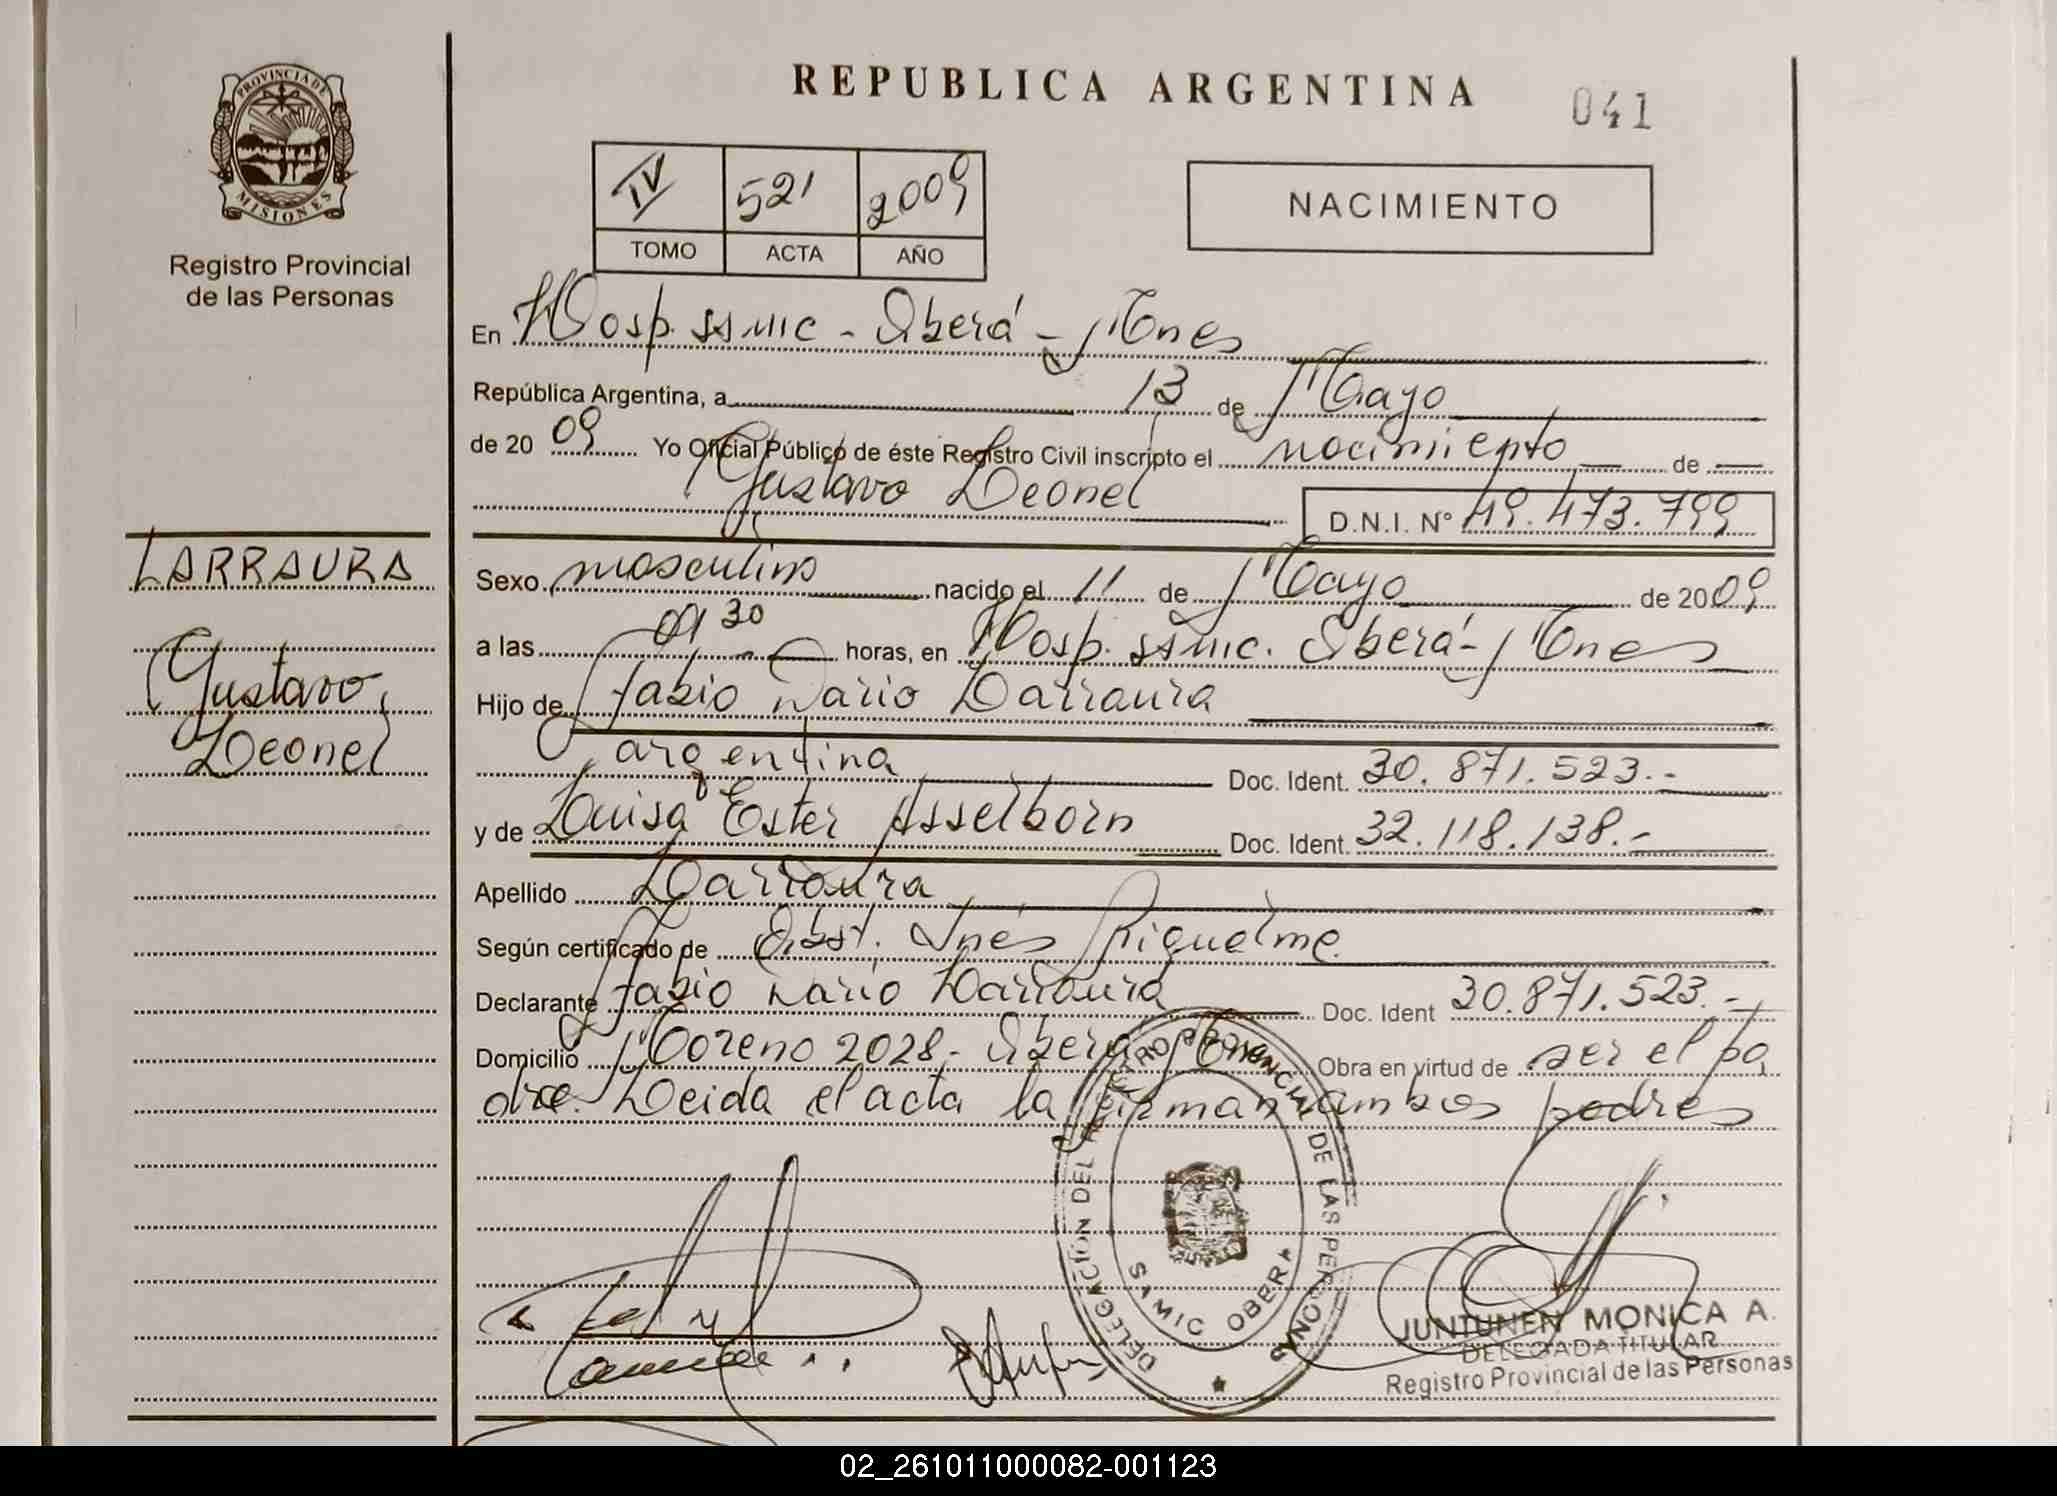 PROVINCIA DE
MISIONES
Registro Provincial
de las Personas
LARRAURA
Gustavo
Leonel
REPUBLICA ARGENTINA
041
IV 521 2009
TOMO ACTA AÑO
NACIMIENTO
En Hosp. SAMIC - Oberá - Mnes
República Argentina, a 13 de Mayo
de 2009 Yo Oficial Público de éste Registro Civil inscripto el nacimiento de
Gustavo Leonel D.N.I. Nº 49.473.799
Sexo masculino nacido el 11 de Mayo de 2009
a las 09 30 horas, en Hosp. SAMIC. Oberá - Mnes
Hijo de Fabio Dario Larraura
argentina Doc. Ident. 30.871.523.-
y de Luisa Ester Asselborn Doc. Ident. 32.118.138.-
Apellido Larraura
Según certificado de Obst. Inés Riquelme
Declarante Fabio Dario Larraura Doc. Ident 30.871.523.-
Domicilio Moreno 2028 - Oberá Mnes Obra en virtud de ser el pa
dre. Leida el acta la firman ambos padres
DELEGACIÓN DEL REGISTRO PROVINCIAL DE LAS PERSONAS
SAMIC OBERA
JUNTUNEN MONICA A.
DELEGADA TITULAR
Registro Provincial de las Personas
02_261011000082-001123